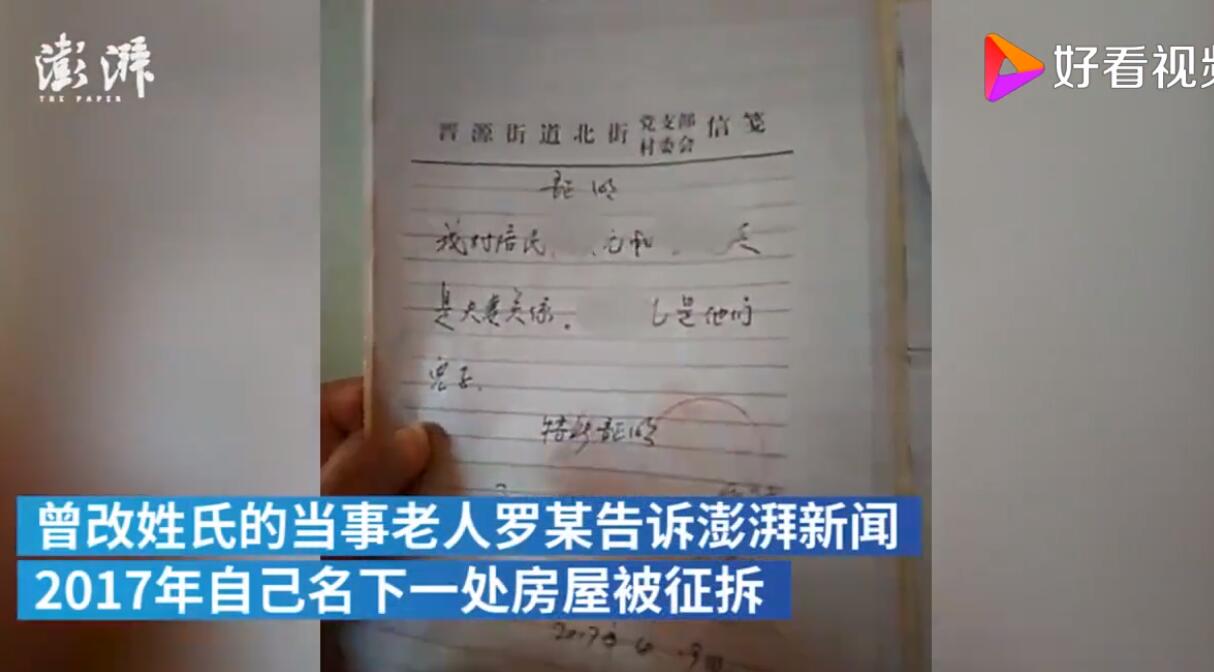 澎湃
THE PAPER
好看视频
晋源街道北街党支部村委会信笺
证明
我村居民
元和
是夫妻关系。
是他们
儿子。
特此证明
曾改姓氏的当事老人罗某告诉澎湃新闻
2017年自己名下一处房屋被征拆
2017年6